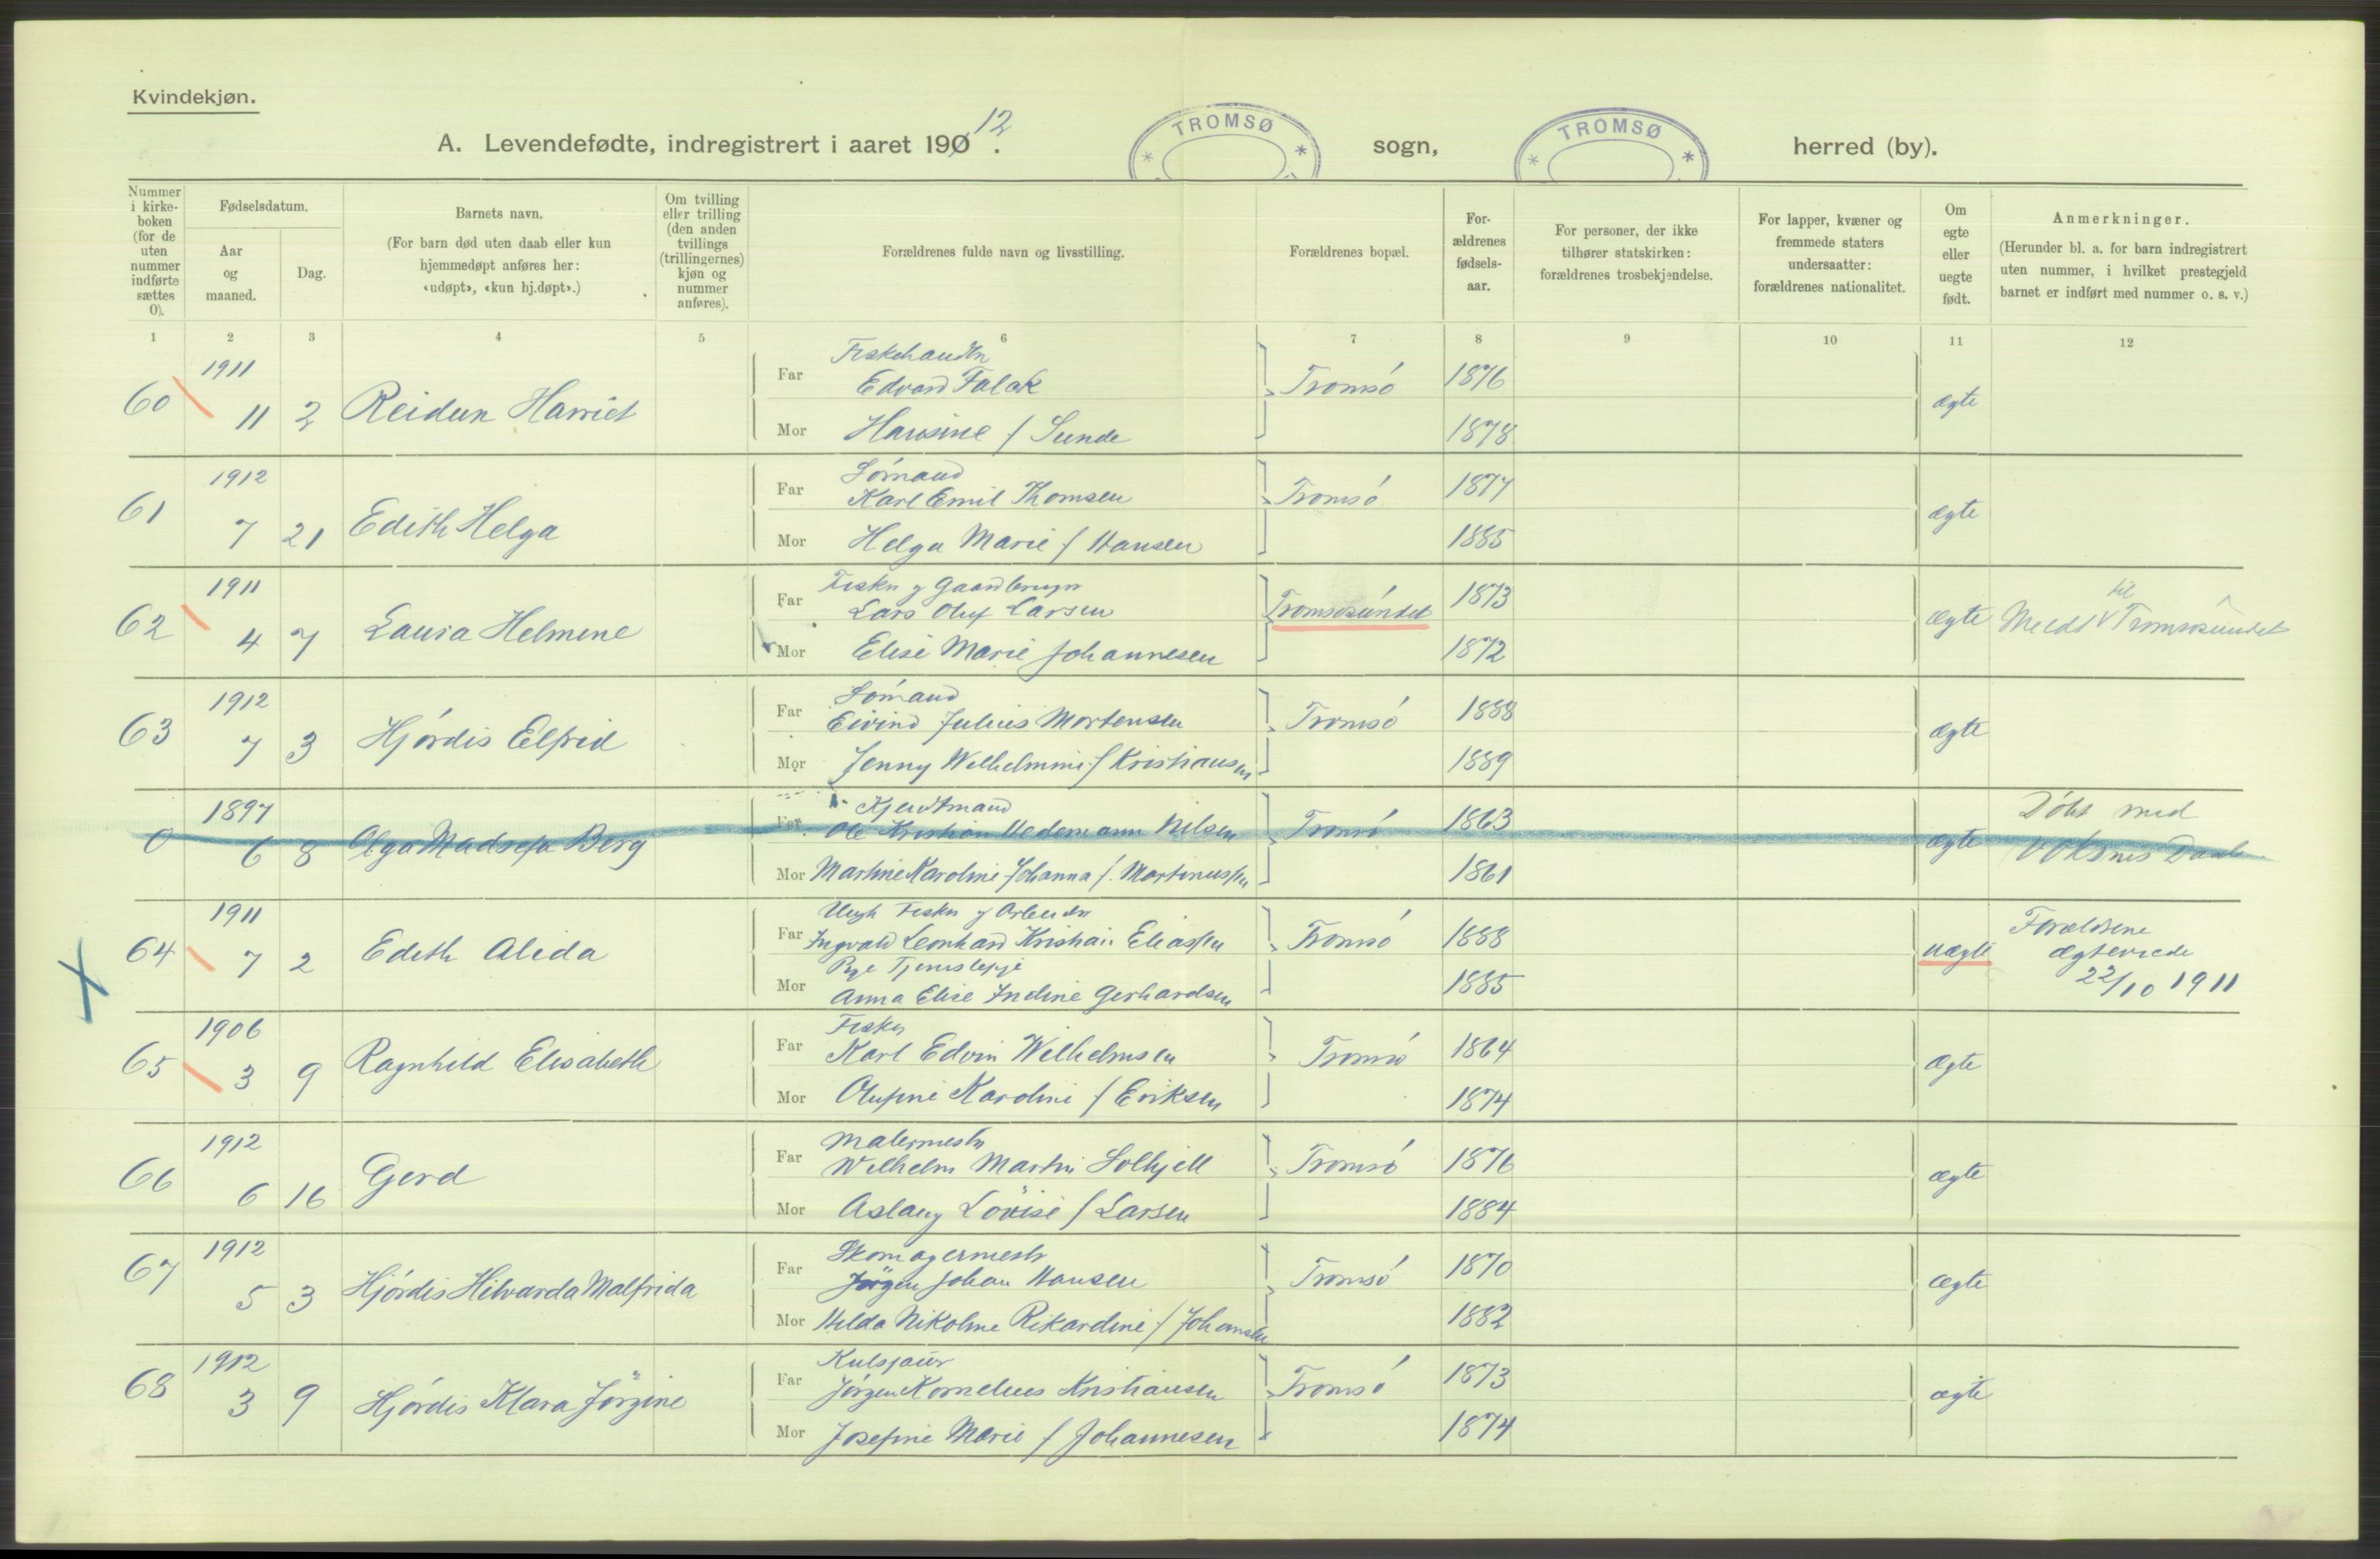 Kvindekjøn.
A. Levendefødte, indregistrert i aaret 1912. TROMSØ sogn, TROMSØ herred (by).
Nummer i kirkeboken (for de uten nummer indførte sættes 0).
Fødselsdatum.
Aar og maaned.
Dag.
Barnets navn.
(For barn død uten daab eller kun hjemmedøpt anføres her: «udøpt», «kun hj.døpt».)
Om tvilling eller trilling (den anden tvillings (trillingernes) kjøn og nummer anføres).
Forældrenes fulde navn og livsstilling.
Forældrenes bopæl.
Forældrenes fødselsaar.
For personer, der ikke tilhører statskirken: forældrenes trosbekjendelse.
For lapper, kvæner og fremmede staters undersaatter: forældrenes nationalitet.
Om egte eller uegte født.
Anmerkninger.
(Herunder bl. a. for barn indregistrert uten nummer, i hvilket prestegjeld barnet er indført med nummer o. s. v.)
1 2 3 4 5 6 7 8 9 10 11 12
60 1911 11 2 Reidun Harriet
Far Fiskehandlr Edvard Falck Tromsø 1876 ægte
Mor Hansine f Sunde 1878
61 1912 7 21 Edith Helga
Far Sömand Karl Emil Thomsen Tromsö 1877 ægte
Mor Helga Marie f Hansen 1885
62 1911 4 7 Laura Helmine
Far Fisker g Gaardbruger Lars Oluf Larsen Tromsøsundet 1873 ægte Meldt til Tromsøsundet
Mor Elise Marie Johannesen 1872
63 1912 7 3 Hjördis Elfrid
Far Sömand Eivind Julius Mortensen Tromsö 1888 ægte
Mor Jenny Wilhelmine f Kristiansen 1889
0 1897 6 8 Olga Madsefa Berg
Far Kjendtmand Ole Kristian Hedemann Nilsen Tromsö 1863 ægte Döbt med Voksnes Daab.
Mor Martine Karoline Johanna f. Martinussen 1861
64 1911 7 2 Edith Alida
Far Ungk Fisker g Arbeider Ingvald Leonhard Kristian Eliassen Tromsö 1888 uægte Forældrene ægteviede 22/10 1911
Mor Pige Tjenestepige Anna Elise Indine Gerhardsen 1885
65 1906 3 9 Ragnhild Elisabeth
Far Fisker Karl Edvin Wilhelmsen Tromsö 1864 ægte
Mor Olufine Karoline f Eriksen 1874
66 1912 6 16 Gerd
Far Malermestr Wilhelm Martin Solhjell Tromsö 1876 ægte
Mor Aslaug Lovise f Larsen 1884
67 1912 5 3 Hjördis Hilvarda Malfrida
Far Skomagermestr Jörgen Johan Hansen Tromsö 1870 ægte
Mor Hilda Nikoline Rikardine f Johansen 1882
68 1912 3 9 Hjördis Klara Jörgine
Far Jörgen Kornelius Kristiansen Tromsö 1873 ægte
Mor Josefine Marie f Johannesen 1874